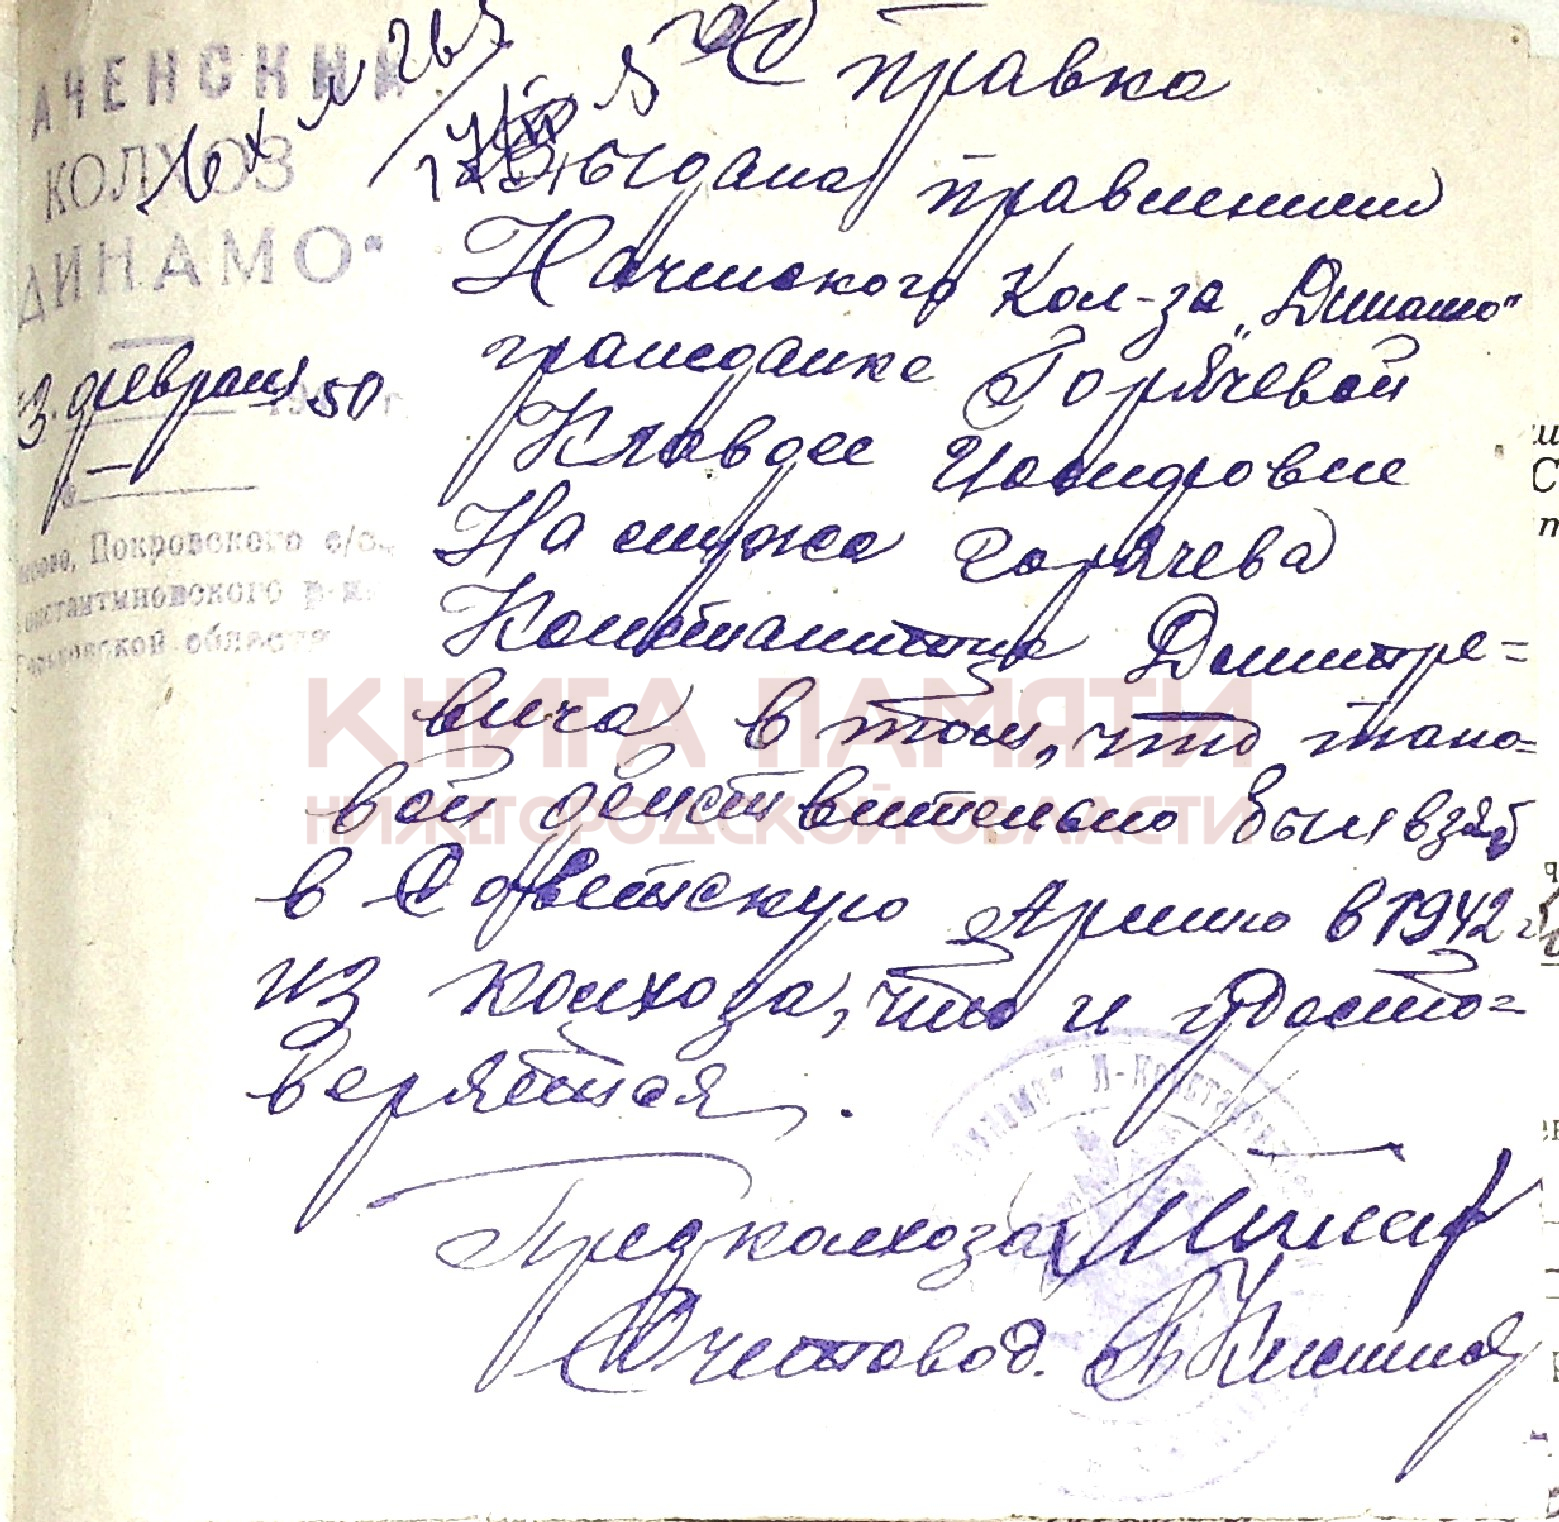 АЧЕНСКИЙ
КОЛХОЗ
ДИНАМО"
3. февраля 1950 г.
Покровского с/с.
онстантиновского р-на
Горьковской области
вх № 265
Справка
Выдана правлением
Начинского Кол-за „Динамо"
гражданке Горячевой
Клавдее Исидровне
На мужа Горячева
Константина Дмитре=
вича в том, что тако=
вой действительно был взят
в Советскую Армию в 1942 г
из колхоза, что и удосто=
веряется.
Предколхоза
Счетовод.
КНИГА ПАМЯТИ
НИЖЕГОРОДСКОЙ ОБЛАСТИ